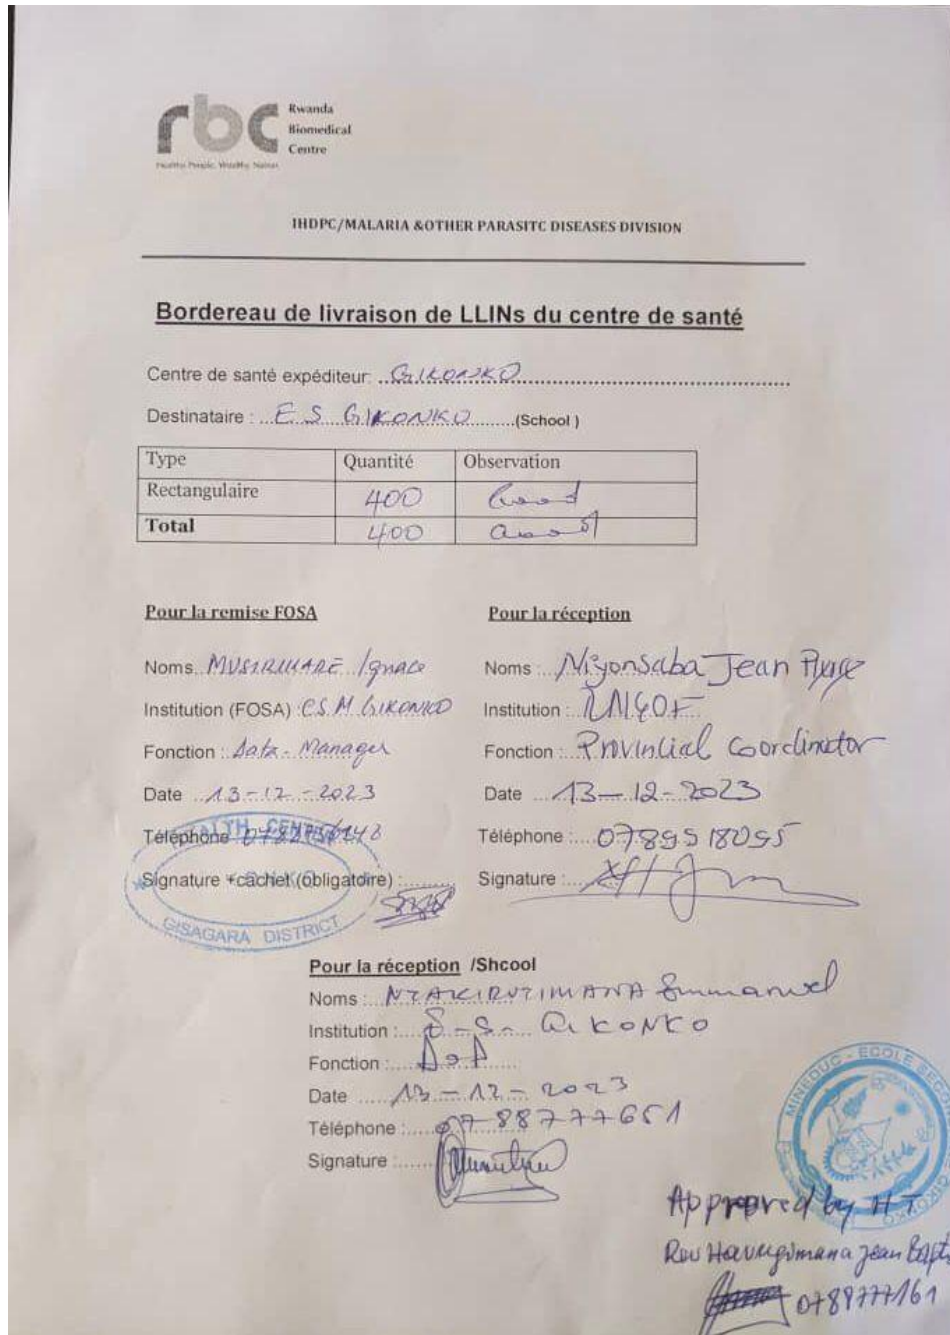 rbc Rwanda
Biomedical
Centre
Healthy People, Wealthy Nation
IHDPC/MALARIA &OTHER PARASITC DISEASES DIVISION
Bordereau de livraison de LLINs du centre de santé
Centre de santé expéditeur: GIKONKO
Destinataire : E.S GIKONKO (School )
Type Quantité Observation
Rectangulaire 400 Good
Total 400 Good
Pour la remise FOSA
Noms MUSIRIKARE Ignace
Institution (FOSA) : C.S M GIKONKO
Fonction : Data-Manager
Date 13-12-2023
Téléphone
Signature +cachet (obligatoire) :
HEALTH CENTRE
GISAGARA DISTRICT
Pour la réception
Noms : Niyonsaba Jean Pierre
Institution : RNGOF
Fonction : Provincial Coordinator
Date 13-12-2023
Téléphone : 0789518095
Signature :
Pour la réception /Shcool
Noms : NTAKIRUTIMANA Emmanuel
Institution : E-S- GIKONKO
Fonction : DoD
Date 13-12-2023
Téléphone : 0788777651
Signature :
MINEDUC - ECOLE
Approved by HT
Rev Havugimana Jean Bapt
0789777161